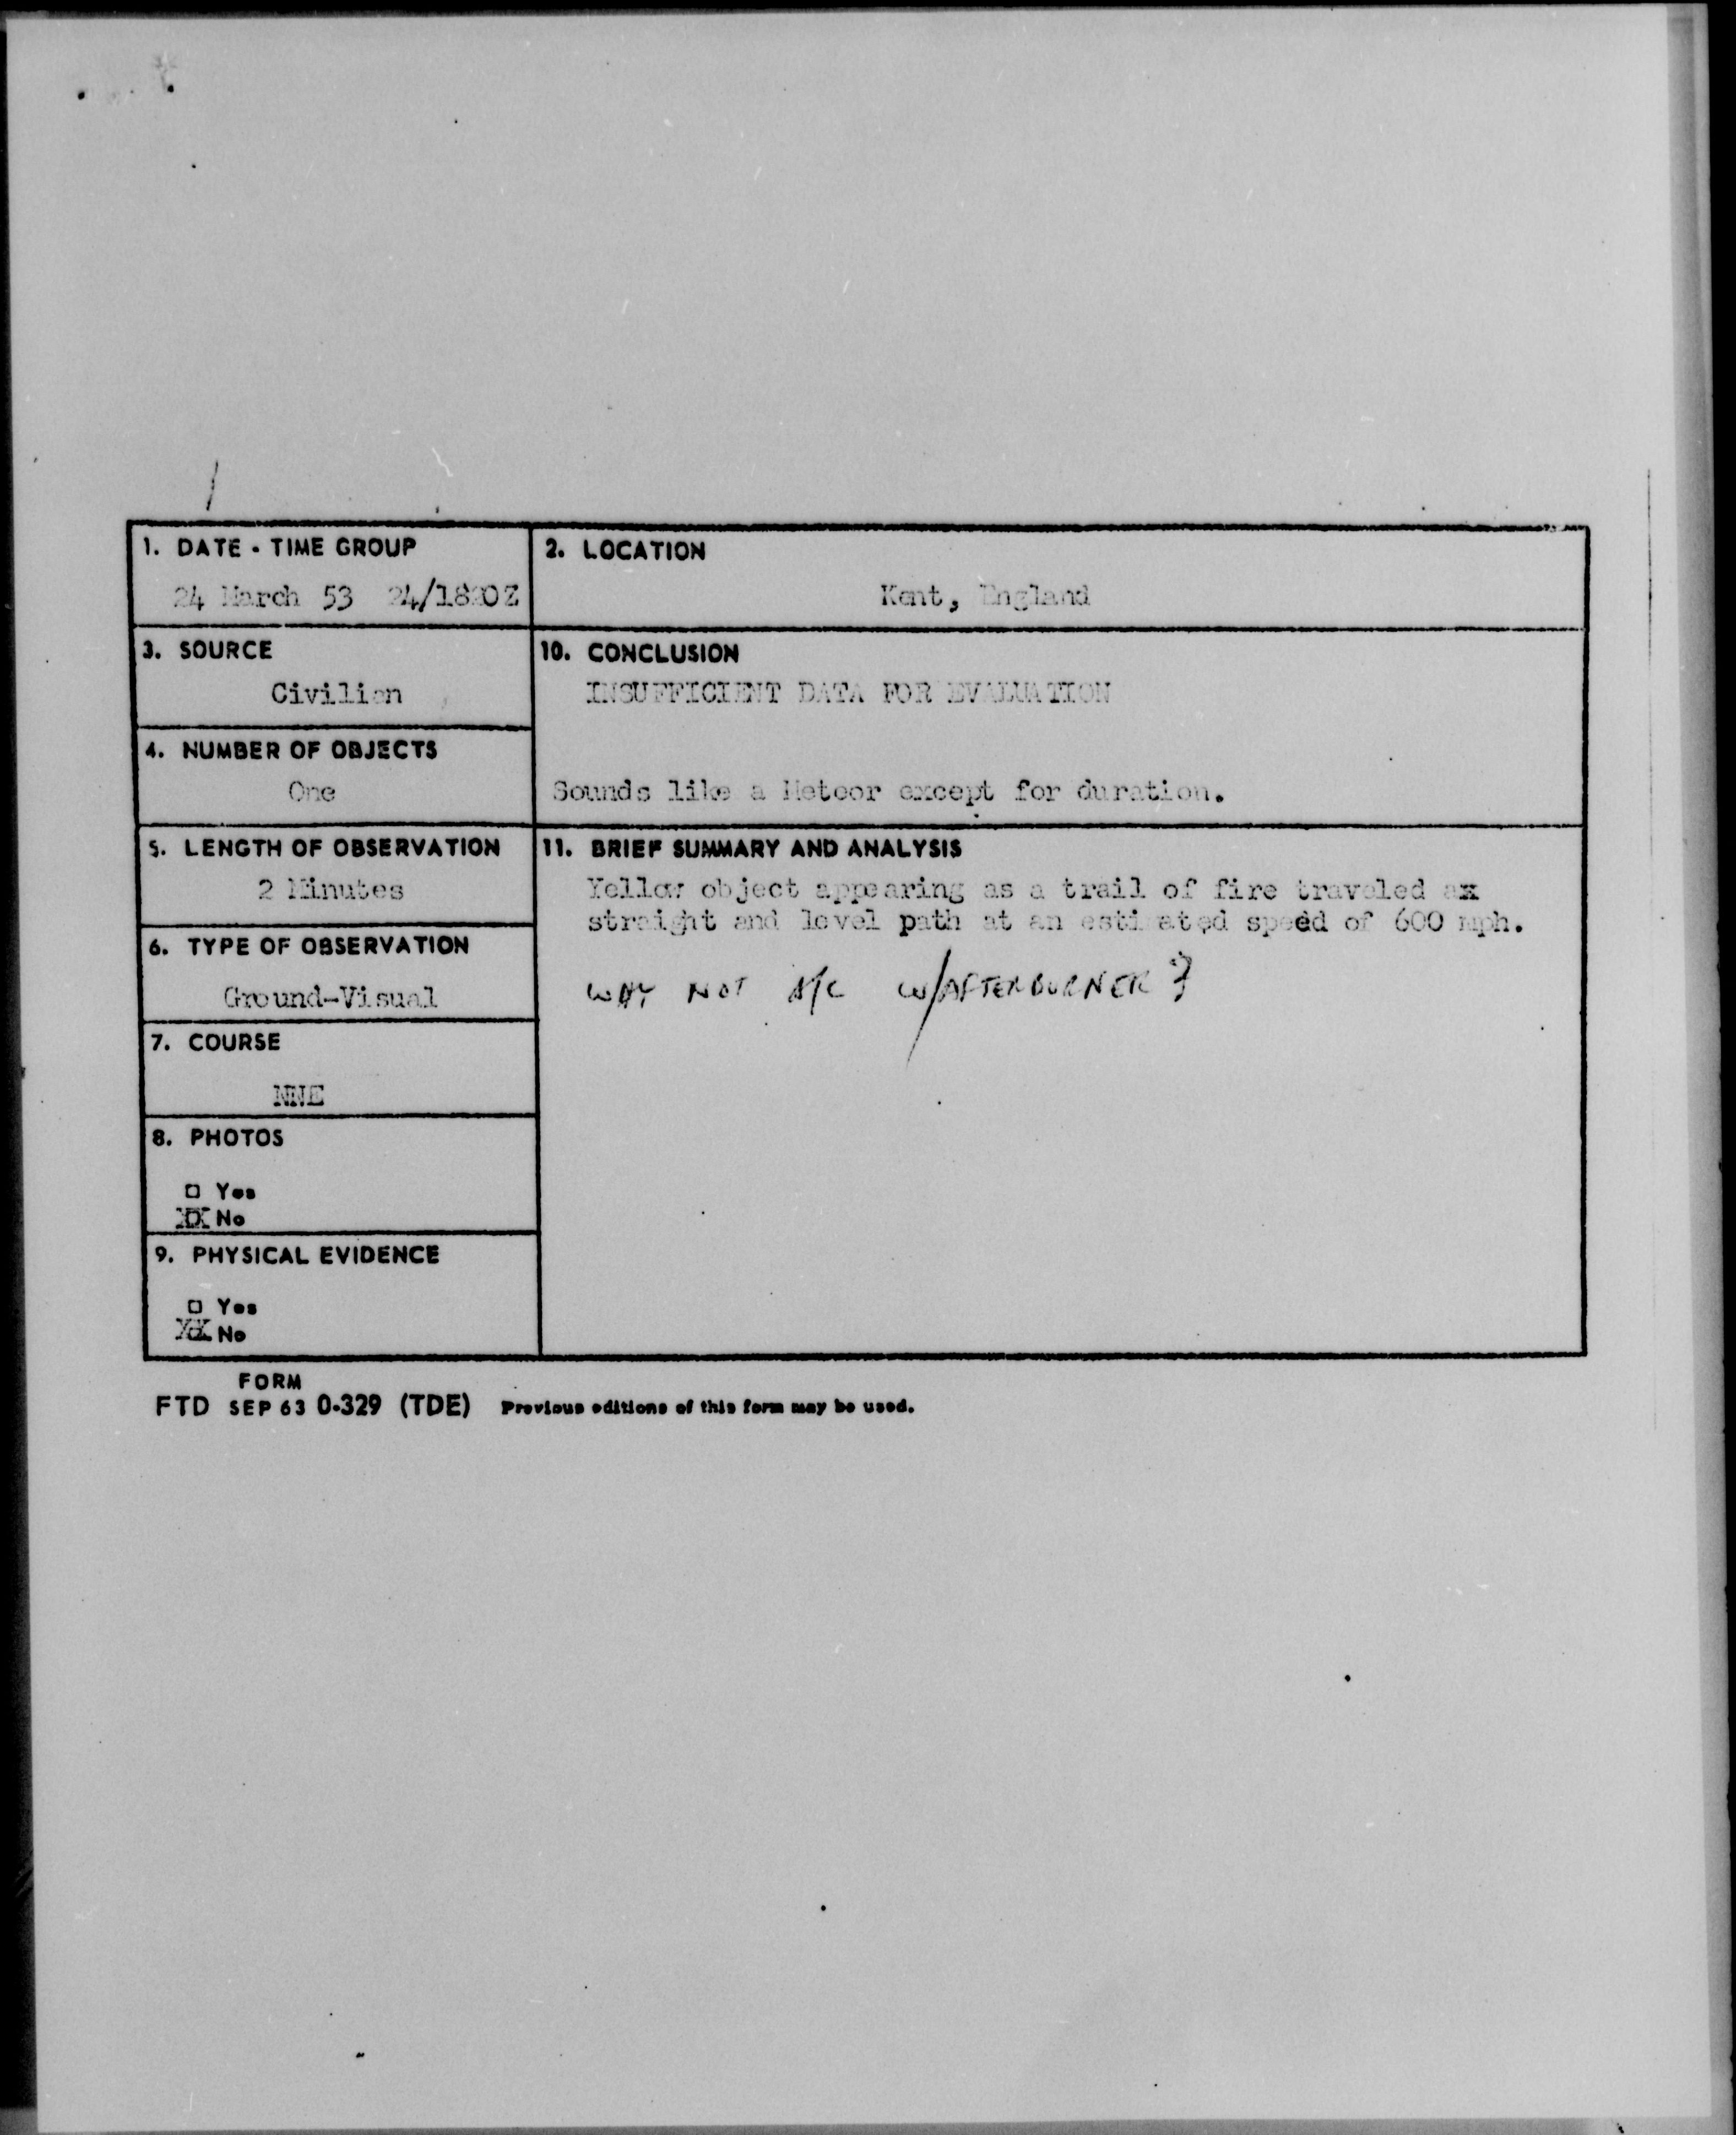 1. DATE - TIME GROUP
24 March 53 24/1820Z
2. LOCATION
Kent, England
3. SOURCE
Civilian
10. CONCLUSION
INSUFFICIENT DATA FOR EVALUATION
Sounds like a Meteor except for duration.
4. NUMBER OF OBJECTS
One
5. LENGTH OF OBSERVATION
2 Minutes
11. BRIEF SUMMARY AND ANALYSIS
Yellow object appearing as a trail of fire traveled ax
straight and level path at an estimated speed of 600 mph.
WHY NOT A/C W/AFTERBURNER?
6. TYPE OF OBSERVATION
Ground-Visual
7. COURSE
NNE
8. PHOTOS
□ Yes
XX No
9. PHYSICAL EVIDENCE
□ Yes
XX No
FORM
FTD SEP 63 0-329 (TDE) Previous editions of this form may be used.